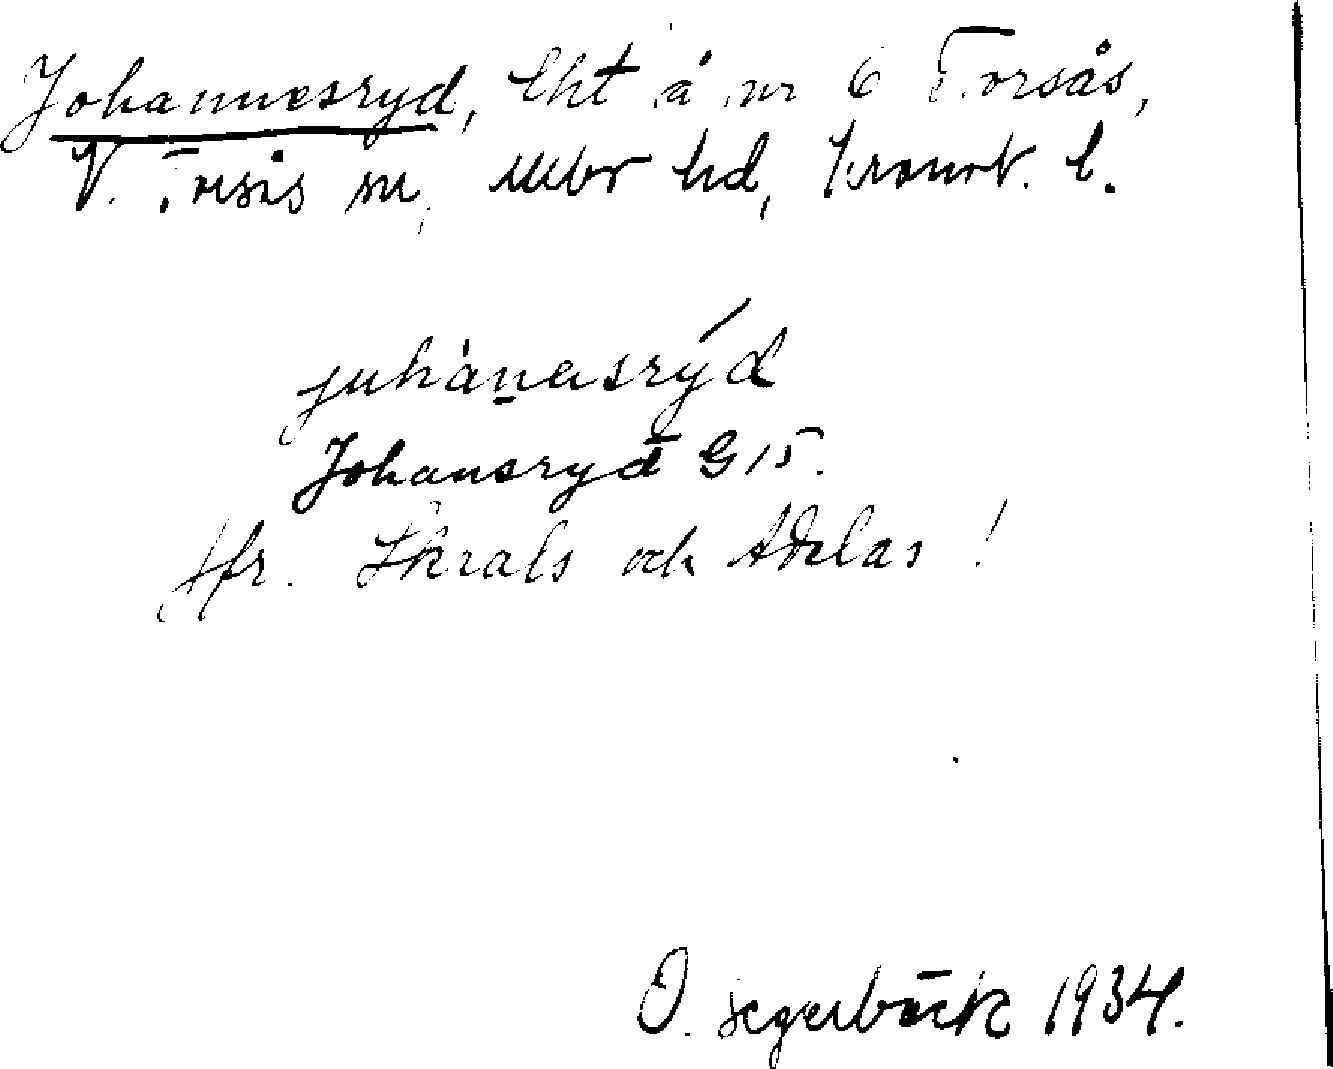 Johannesryd, lht å nr 6 Torsås,
V. Torsås sn, Allbo hd, Kronob. l.
juhànasrýd
Johansryd G 15.
Jfr. Skrals och Adelas!
O. Segerbäck 1934.